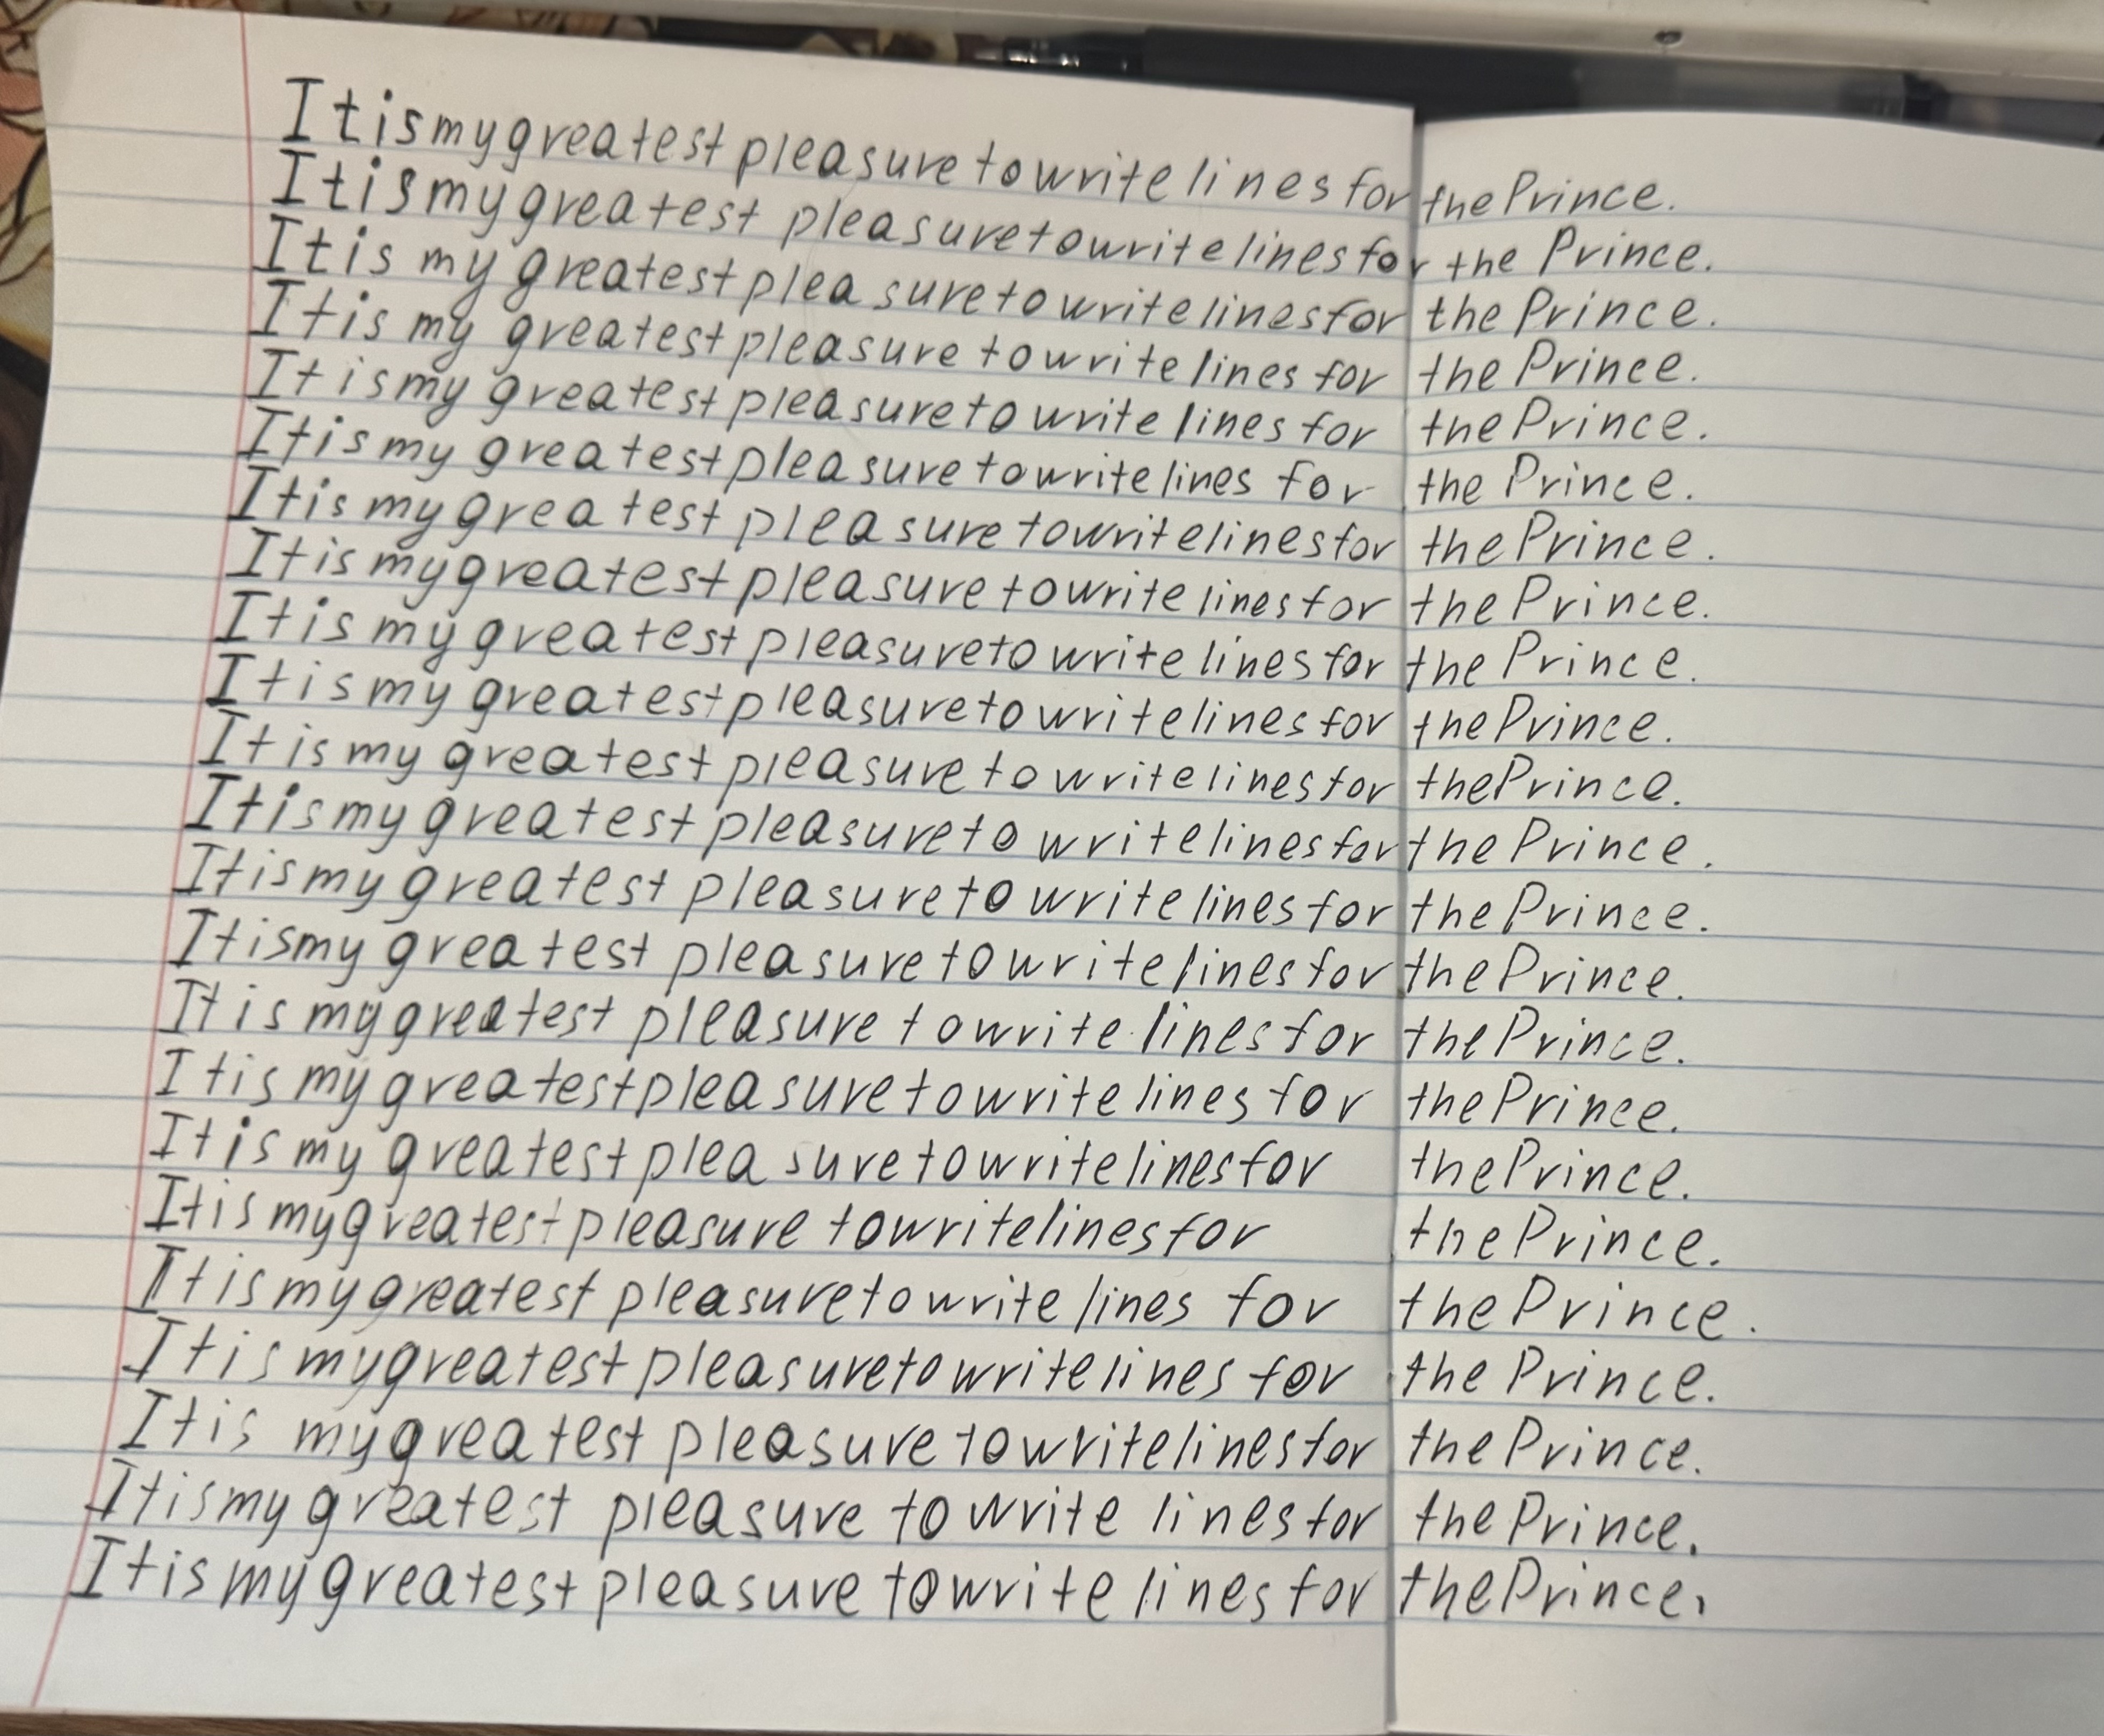 It is my greatest pleasure to write lines for the Prince.
It is my greatest pleasure to write lines for the Prince.
It is my greatest pleasure to write lines for the Prince.
It is my greatest pleasure to write lines for the Prince.
It is my greatest pleasure to write lines for the Prince.
It is my greatest pleasure to write lines for the Prince.
It is my greatest pleasure to write lines for the Prince.
It is my greatest pleasure to write lines for the Prince.
It is my greatest pleasure to write lines for the Prince.
It is my greatest pleasure to write lines for the Prince.
It is my greatest pleasure to write lines for the Prince.
It is my greatest pleasure to write lines for the Prince.
It is my greatest pleasure to write lines for the Prince.
It is my greatest pleasure to write lines for the Prince.
It is my greatest pleasure to write lines for the Prince.
It is my greatest pleasure to write lines for the Prince.
It is my greatest pleasure to write lines for the Prince.
It is my greatest pleasure to write lines for the Prince.
It is my greatest pleasure to write lines for the Prince.
It is my greatest pleasure to write lines for the Prince.
It is my greatest pleasure to write lines for the Prince.
It is my greatest pleasure to write lines for the Prince.
It is my greatest pleasure to write lines for the Prince.